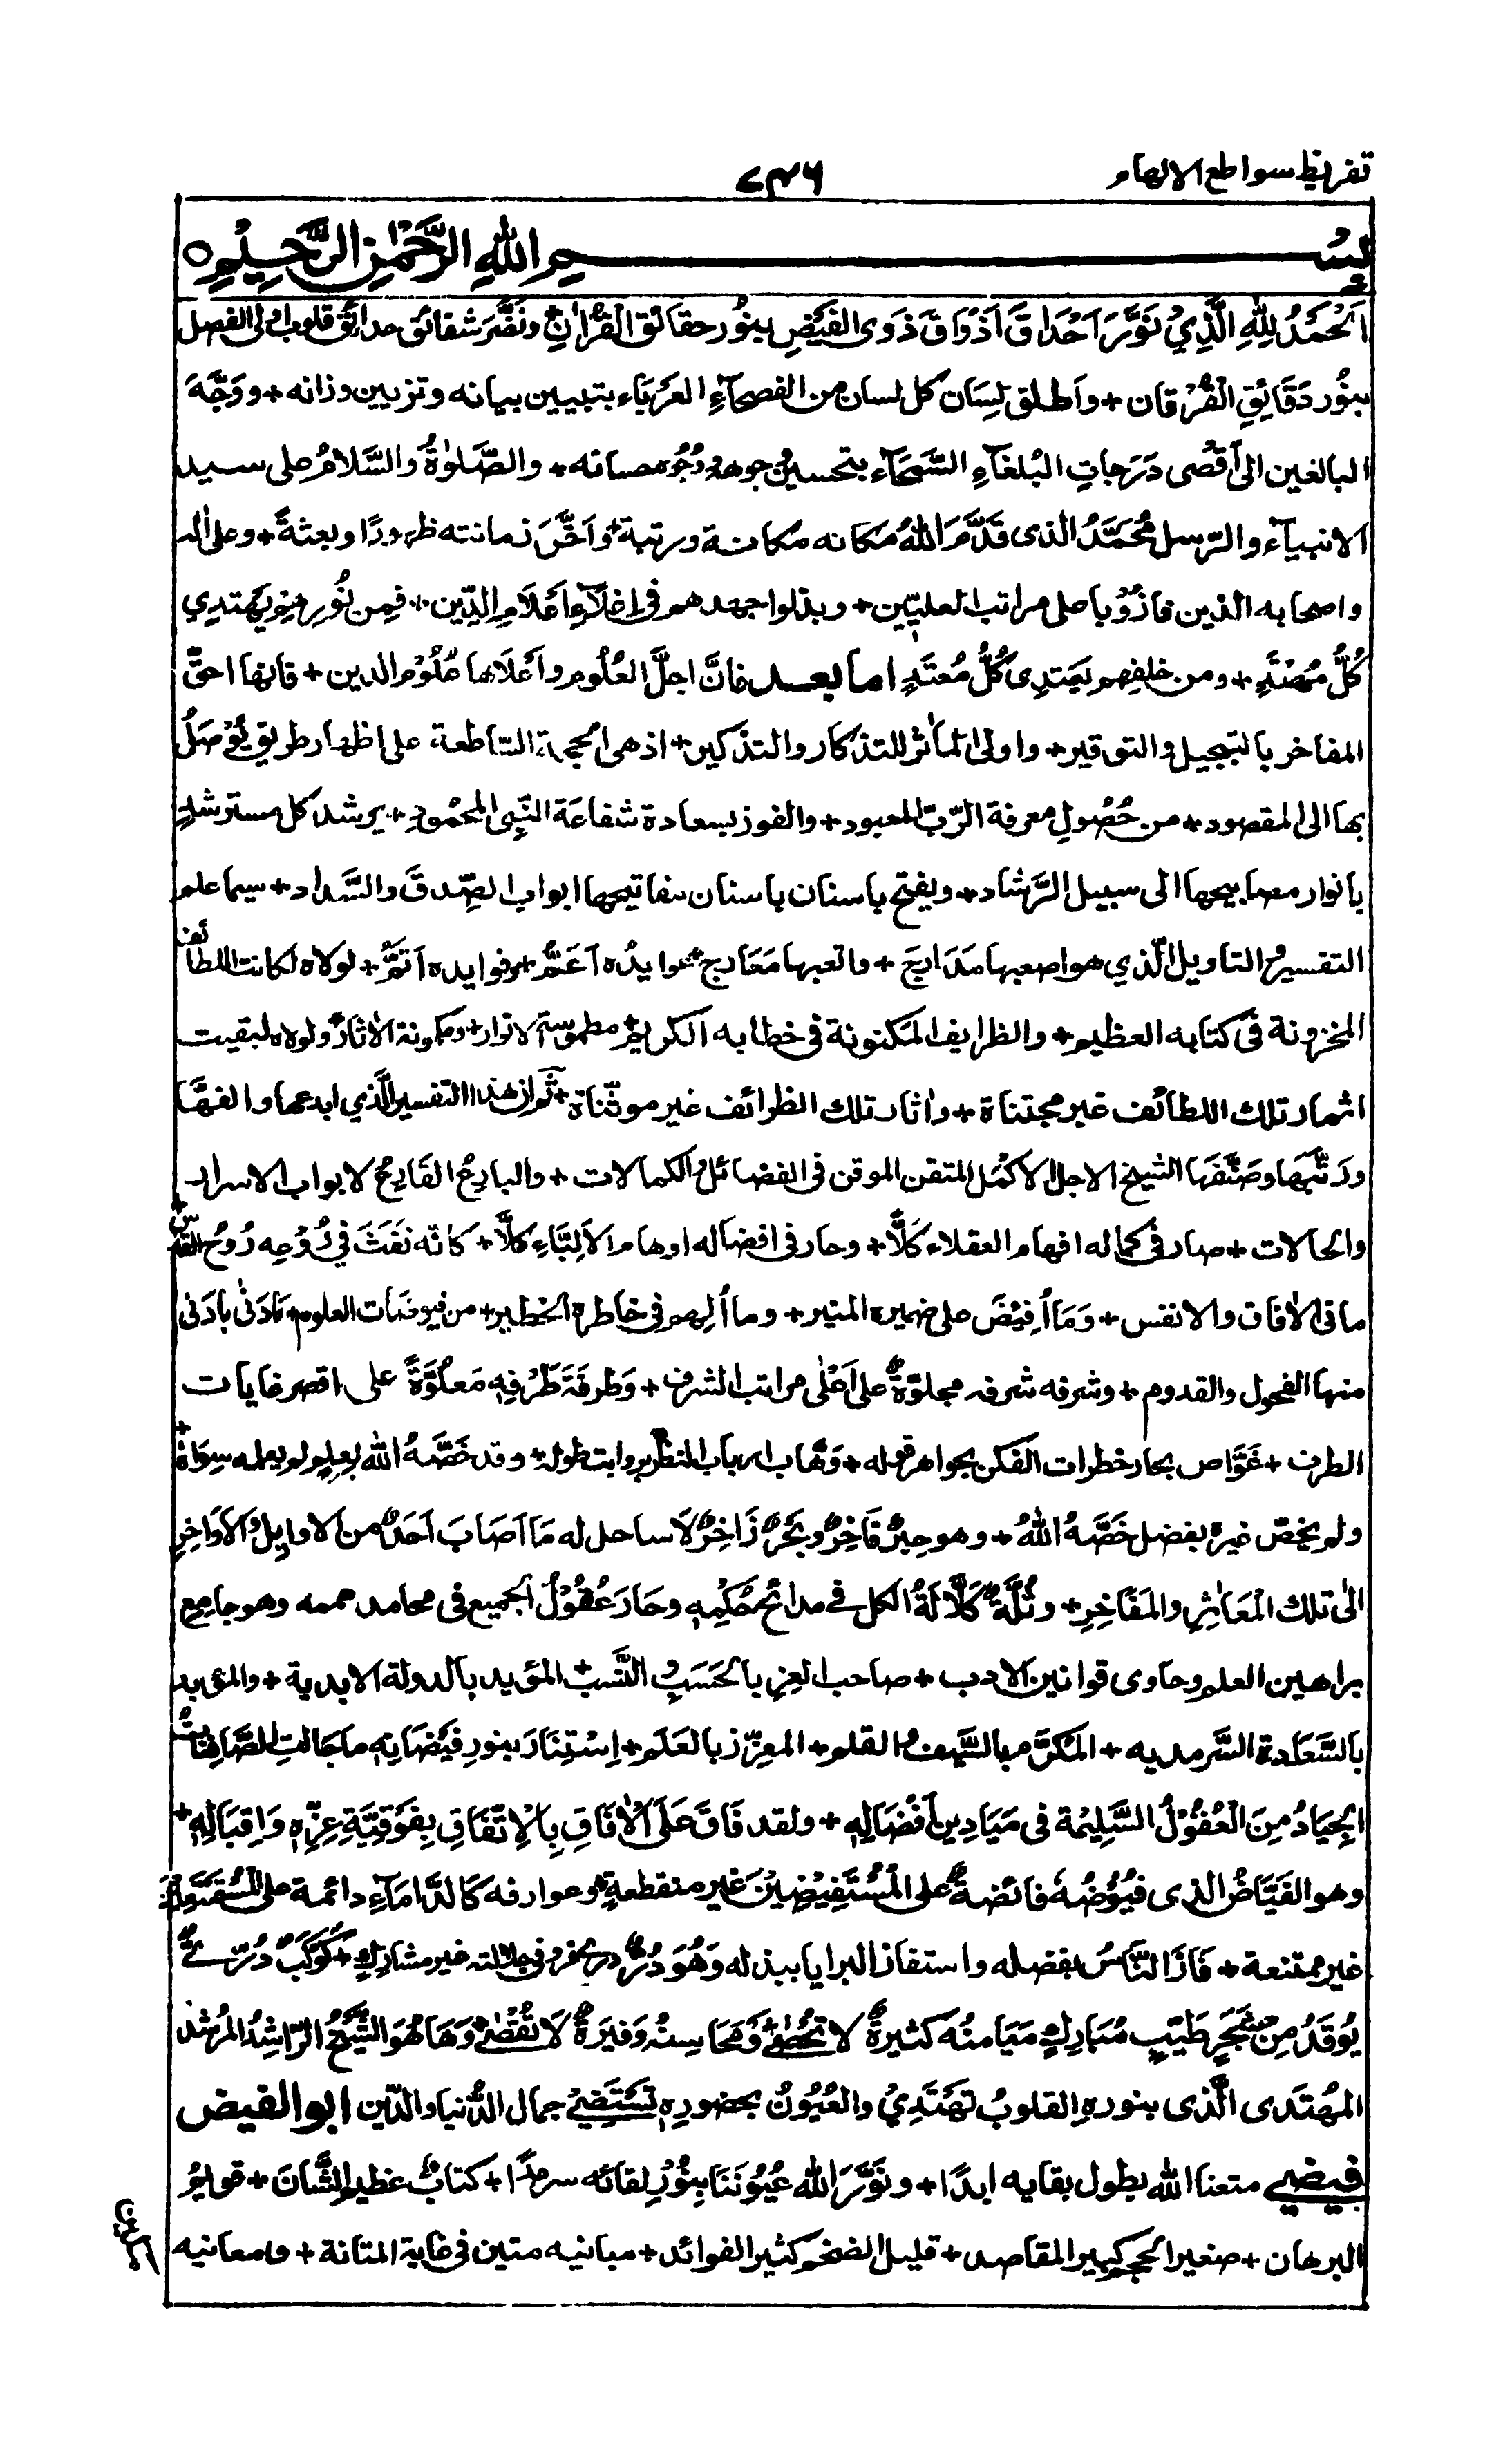 تفريظ سواطع الالهام
۷۳۶
بسم الله الرحمن الرحيم
اَلْحَمْدُ لِلّٰهِ الَّذِيْ نَوَّرَ اَحْدَاقَ اَذْوَاقَ ذَوِى الفَيْضِ بنُور حقائق القُرْاٰنِ + ونَضَّرَ شقائق حدائق قلوب اولى الفضل
بنُور دَقَائِقِ الْفُرْقان + واَطلق لِسَان كل لسان من الفصحاءِ العَرْبَاء بتبيين بيانه وتزيين وزانه + ووَجَّهَ
البالغين الى اَقْصى دَرَجاتِ البُلغَآءِ السَّمْحَآء بتحسين جوهه ووُجُوه حسانه + والصَّلوٰةُ والسَّلامُ على سيد
الانبيآء والرّسل مُحَمَّدُ الذى قدَّمَ اللهُ مكانه مكانة ورتبة + واَخَّرَ زمانته ظهورًا وبعثةً + وعلى اله
واصحابه الذين فازُوْا باعلى مراتب العليّين + وبذلوا جهدهم فى اِعْلَآءِ اَعْلَامِ الدِّين + فمِن نُورِهِمْ يَهتدِي
كُلُّ مُهْتَدٍ + ومن خلفِهم يَعتدِى كُلُّ مُعتَدٍ اما بعد فانَّ اجلَّ العُلُوم واَعْلَاها عُلُوْمُ الدين + فانها احقّ
المفاخر بالتبجيل والتوقير + واولى المآثر للتذكار والتذكير + اذ هى الحجة الساطعة على اظهار طريق يُوْصَلُ
بها الى المقصود + من حُصُولِ معرفة الرّبّ المعبود + والفوز بسعادة شفاعَة النَّبِى المحْمُود + يرشد كل مسترشدٍ
بانوار مصابيحها الى سبيل الرَّشاد + ويفتح باسنان باسنان مفاتيحها ابواب الصِّدق والسَّداد + سيما علم
التفسير والتاويل الّذي هو اصعبها مَدَارجَ + واتعبها مَعَارج + عوايدُه اَعَمُّ + وفوايده اَتمُّ + لولاه لكانت اللطائف
المخزونة فى كتابه العظيم + والظرايف المكنونة فى خطابه الكريم مطموسة الانوار + ومكمونة الاٰثار + ولولاه لبقيت
اثمار تلك اللطائف غير مجتناة + واٰثار تلك الظرائف غير موثناة + ثم ان هذا التفسير الَّذي ابدعها والفهَا
ورَتَّبَهَا وصَنَّفَهَا الشيخ الاجل الاكْمل المتقن الموقن فى الفضائل والكمالات + والبارِعُ القَارِعُ لابواب الاسرار
والحالات + صار فى كماله افهام العقلاء كَلًّا + وحار فى افضاله اوهام الاَلِبَّاءِ كلًّا + كانّه نَفَثَ فِيْ رُوْعِه رُوحُ القدس +
ما فى الاٰفاق والانفس + وَمَا اُفِيْضَ على ضميره المنير + وما اُلهِم فى خاطره الخطير + من فيوضات العلوم + نادَنٰى بادَنٰى
منها الفحول والقدوم + وشرفه شرفه مجلوّةٌ على اَعْلٰى مراتب الشرف + وَطرفَة طُرْفِه مَعلُوَّةً على اقصى غايات
الطرف + غَوَّاص بحار خطرات الفكر بجواهر قوله + وَهَّاب ارباب النظر برواتب طوله + وقد خَصَّهُ الله بعِلمٍ لم يعلمه سِوَاهُ +
ولم يخصّ غيره بفضل خَصَّهُ اللهُ + وهو حِبْرٌ فَاخِرٌ وبَحْرٌ زَاخِرٌ لَا ساحل له مَا اَصَابَ اَحَدٌ من الاوايِل والاَوَاخِرِ
الٰى تلك المَعَاثِر والمَفَاخِرِ + وثُلَّةٌ كَلَّالَةُ الكل فے مدائح حُكْمِه وحَارَ عُقُوْلُ الجميع فى محامد هممه وهو جامع
براهين العلم وحاوى قوانين الادب + صاحب العِزِ بالحَسَبِ والنَّسَبِ + المؤيد بالدولة الابدية + والمؤيد
بالسَّعَادة السَّرمديه + المُكرَّم بالسَّيف والقلم + المعزّز بالعَلَم + اِسْتِنَارَ بنورِ فيْضَانِه ما جَالتِ الصَّافِنَاتُ
الجِيَادُ مِنَ الْعُقُوْلُ السَّلِيْمَة فى مَيَادِين اَفْضَالِهٖ + ولقد فَاقَ عَلَى الْاٰفَاقِ بِالْاِتِّفَاقِ بِفَوْقِيَّةِ عِزِّهٖ وَاِقبَالِهٖ +
وهو الفَيَّاضُ الذى فيُوُضُهٗ فائضةٌ على المُسْتَفِيْضِيْنَ غير منقطعةٍ + وعوارفه كالدَّامَآءِ دائمة على
غير ممتنعة + فَازَ النَّاسُ بفضله واستفاز البرايا ببذله وَهُوَ دُرٌّ فى جلالته غير مشاركٍ + كَوْكَبٌ دُرِّيٌّ
يُوْقَدُ مِنْ شَجَرٍ طَيّبٍ مُبَارِكٍ مَيَامنُهٗ كثيرةٌ لا تُحْصٰى + ومَحَاسِنُه وَفيرَةٌ لَا تُقْصٰى + وَهَا هُوَ الشَّيْخُ الرّاشِدُ المُرشد
المُهتَدى الَّذى بنوره القلوبُ تهَتَدِيْ والعُيُوْنُ بحضورهٖ تَسْتَضِيْ جمال الدُّنيا والدّين ابو الفيض
فيضے متعنا الله بطول بقايه ابدًا + ونَوَّرَ الله عُيُوْنَنَا بِنُوْرِ لقائه سرمدًا + كتابٌ عظيم الشَّان + قويمُ
البرهان + صغير الحجم كبير المقاصد + قليل الضخم كثير الفوائد + مبانيه متين فى غاية المتانة + ومعانيه